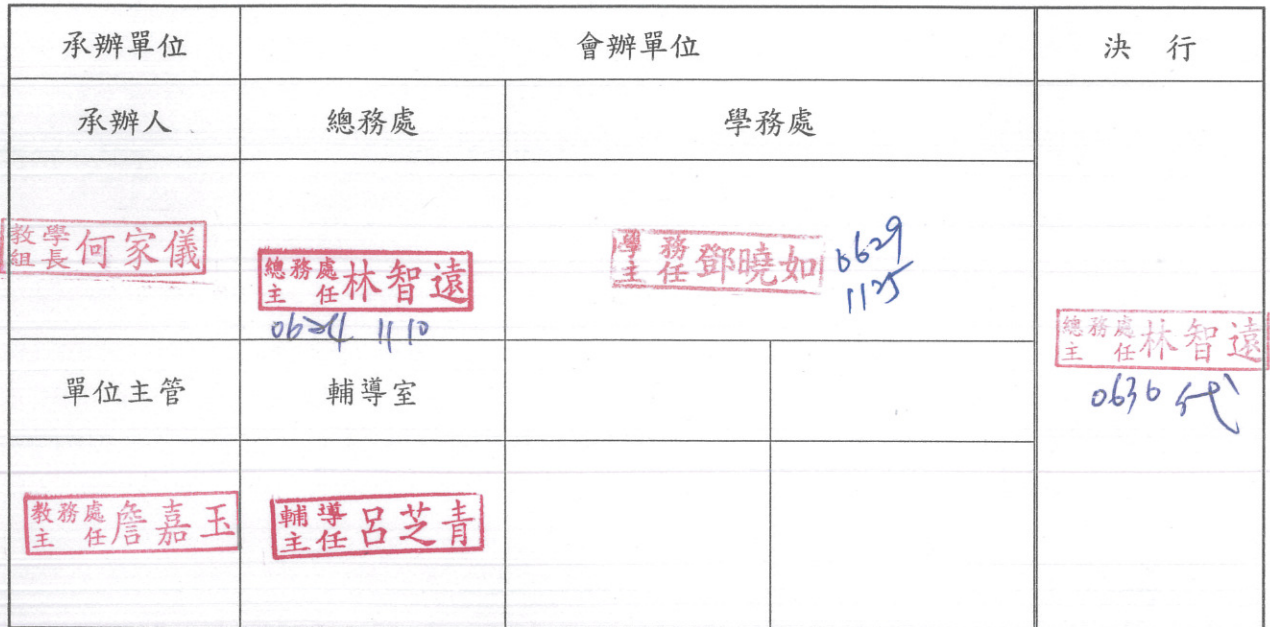 承辦單位 會辦單位 決 行
承辦人 總務處 學務處
教學組長 何家儀
總務處主任 林智遠
0624 1110
學務主任 鄧曉如
0629
1125
總務處主任 林智遠
0630 代
單位主管 輔導室
教務處主任 詹嘉玉
輔導主任 呂芝青